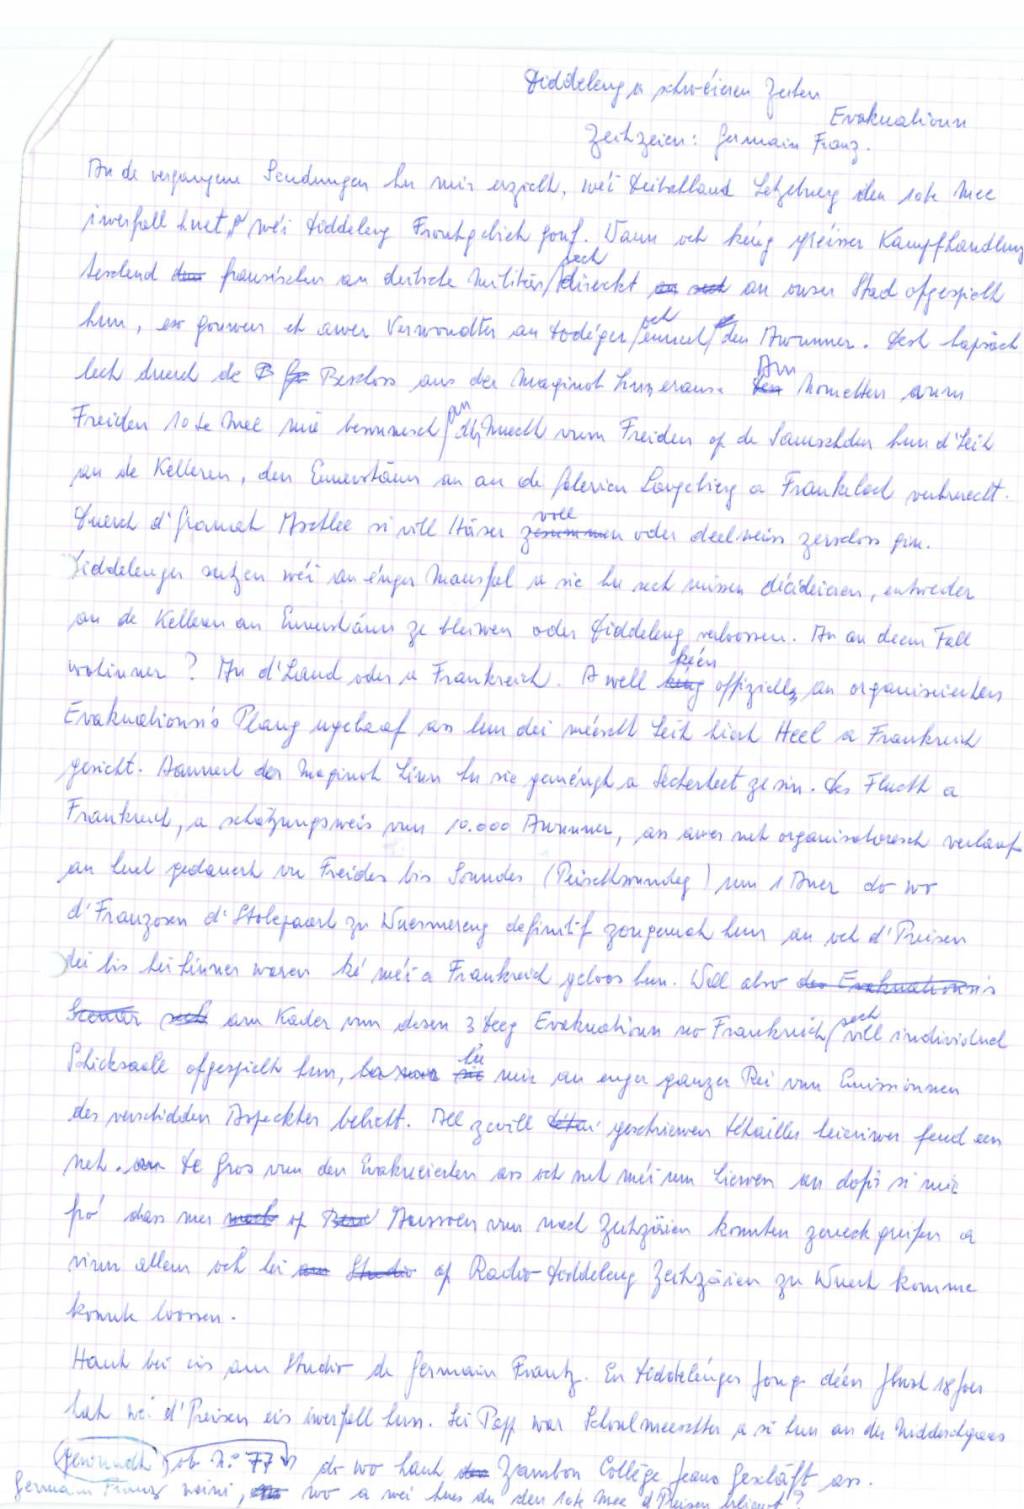 Diddeleng a schwéieren Zeiten
Evakuatioun
Zeitzeien: Germain Franz.
An de vergangene Sendungen hu mir erzielt, wéi Deitschland Letzebuerg den 10te Mee
iwerfall huet, wéi Diddeleng Frontgebiet gouf. Wann och keng gréisser Kampfhandlung
teschend franséischen an deitsche Militär sech direkt an onser Stad ofgespillt
hun, esou gouwen et awer Verwondter an Dodeger och ennert den Awunner. Sech
duerch de Beschoss aus der Maginot Linn eraus. Am Nometten vum
Freiden 10te Mee an d'Nuecht vum Freiden op de Samschden hun d'Leit
an de Kelleren, den Ennerstänn an an de Galerien Langebierg a Frankeloch verbruecht.
Duerch d'Granat si vill Haiser voll oder deelweis zerschoss gin.
Diddelenger sutzen wéi an enger Mausfal a sie hu sech missen décidéieren, entweder
an de Kelleren an Ennerstänn ze bleiwen oder Diddeleng verloossen. An an deem Fall
wohinner? An d'Land oder a Frankreich. A well kéen offiziellen an organiséierten
Evakuatiouns Plang ugelaf ass hun déi meescht Leit hiert Heel a Frankreich
gesicht. Hannert der Maginot Linn hu sie gemengt a Secherheet ze sin. Des Flucht a
Frankreich, a schätzungsweis vun 10.000 Awunner, ass awer net organisatoresch verlaf
an huet gedauert vu Freides bis Sonndes (Peischtsonndeg) um 1 Auer do wo
d'Franzosen d'Stolspaart zu Wuermereng definitif zougemach hun an och d'Preisen
déi bis hei hinner waren ké méi a Frankreich geloos hun. Well also
am Kader vun desen 3 Deeg Evakuatioun no Frankreich sech vill individuel
Schicksaale ofgespillt hun, hu mir an enger ganzer Rei vun Emissiounen
des verschidden Aspekter behielt. All zevill geschriwen Détailler heiriwer fend een
net. De Gros vun den Evakuéierten ass och net méi um Liewen an dofir si mir
fro dass mer op Aussoen vun nach Zeitzäien konnten zereckgreifen a
virun allem och hei op Radio Diddeleng Zeitzäien zu Wuert komme
konnte loossen.
Haut bei eis am Studio de Germain Frantz. En Diddelenger Jong deen just 18 Joer
hat wéi d'Preisen eis iwerfall hun. Sei Papp war Schoulmeeschter a si hun an der Nidderschgaas
gewunnt ob N° 77 do wo haut Zambon Collège Jeans Geschäft ass.
Germain Franz, wo a wéi hues du den 10te Mee d'Preisen erliewt?